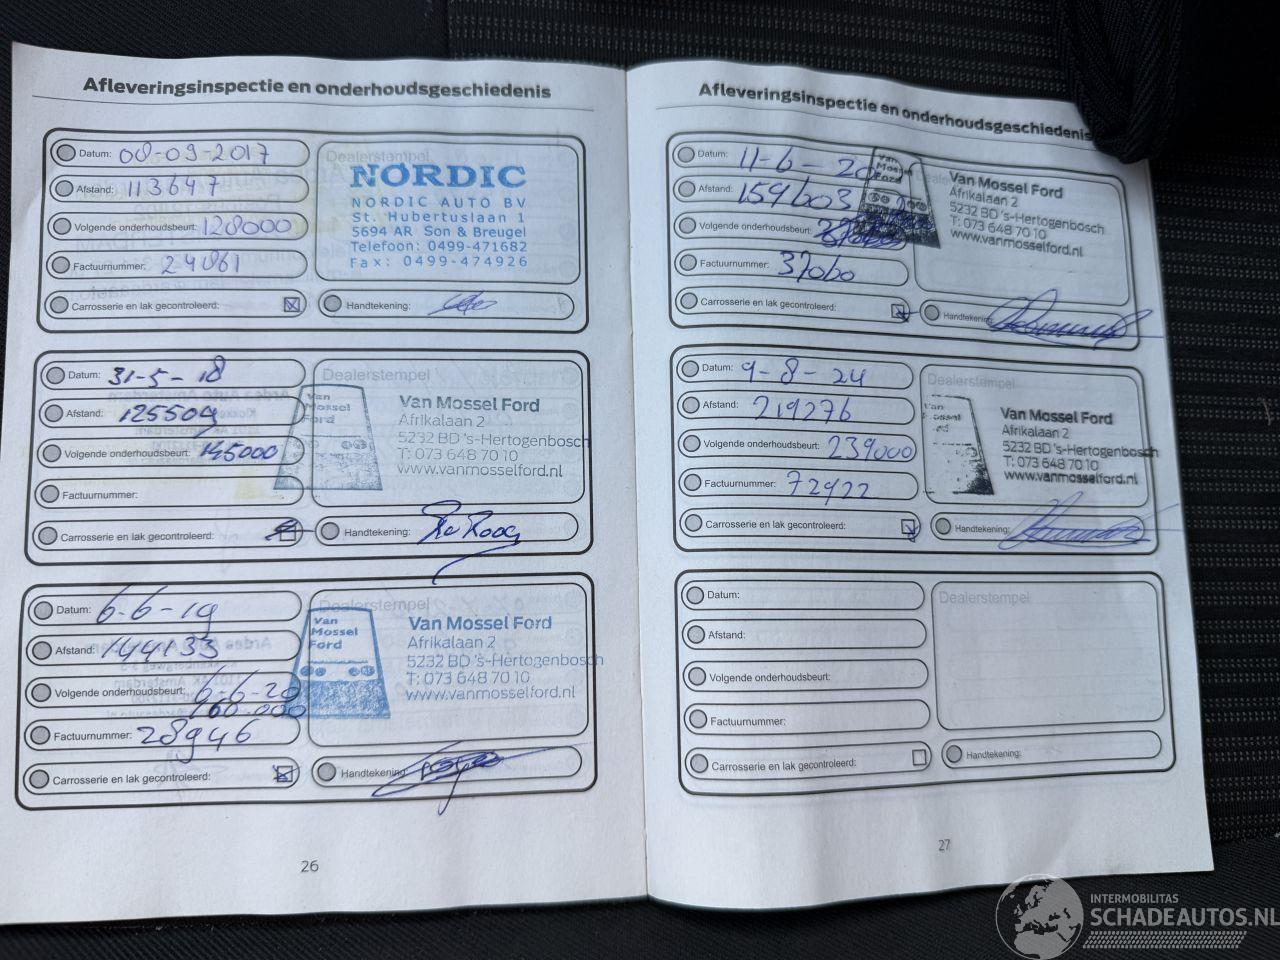 Afleveringsinspectie en onderhoudsgeschiedenis
Datum: 08-09-2017
Afstand: 113647
Volgende onderhoudsbeurt: 128000
Factuurnummer: 24861
Carrosserie en lak gecontroleerd:
Dealerstempel
NORDIC
NORDIC AUTO BV
St. Hubertuslaan 1
5694 AR Son & Breugel
Telefoon: 0499-471682
Fax: 0499-474926
Handtekening:
Datum: 31-5-18
Afstand: 125504
Volgende onderhoudsbeurt: 145000
Factuurnummer:
Carrosserie en lak gecontroleerd:
Dealerstempel
Van
Mossel
Ford
Van Mossel Ford
Afrikalaan 2
5232 BD 's-Hertogenbosch
T: 073 648 70 10
www.vanmosselford.nl
Handtekening:
Datum: 6-6-19
Afstand: 144133
Volgende onderhoudsbeurt: 6-6-20
160-000
Factuurnummer: 28946
Carrosserie en lak gecontroleerd:
Dealerstempel
Van
Mossel
Ford
Van Mossel Ford
Afrikalaan 2
5232 BD 's-Hertogenbosch
T: 073 648 70 10
www.vanmosselford.nl
Handtekening:
26
Afleveringsinspectie en onderhoudsgeschiedenis
Datum: 11-6-20
Afstand: 159603
Volgende onderhoudsbeurt:
Factuurnummer: 37060
Carrosserie en lak gecontroleerd:
Van
Mossel
Ford
Van Mossel Ford
Afrikalaan 2
5232 BD 's-Hertogenbosch
T: 073 648 70 10
www.vanmosselford.nl
Handtekening:
Datum: 9-8-24
Afstand: 219276
Volgende onderhoudsbeurt: 239000
Factuurnummer: 72922
Carrosserie en lak gecontroleerd:
Dealerstempel
Van Mossel Ford
Afrikalaan 2
5232 BD 's-Hertogenbosch
T: 073 648 70 10
www.vanmosselford.nl
Handtekening:
Datum:
Afstand:
Volgende onderhoudsbeurt:
Factuurnummer:
Carrosserie en lak gecontroleerd:
Dealerstempel
Handtekening:
27
INTERMOBILITAS
SCHADEAUTOS.NL